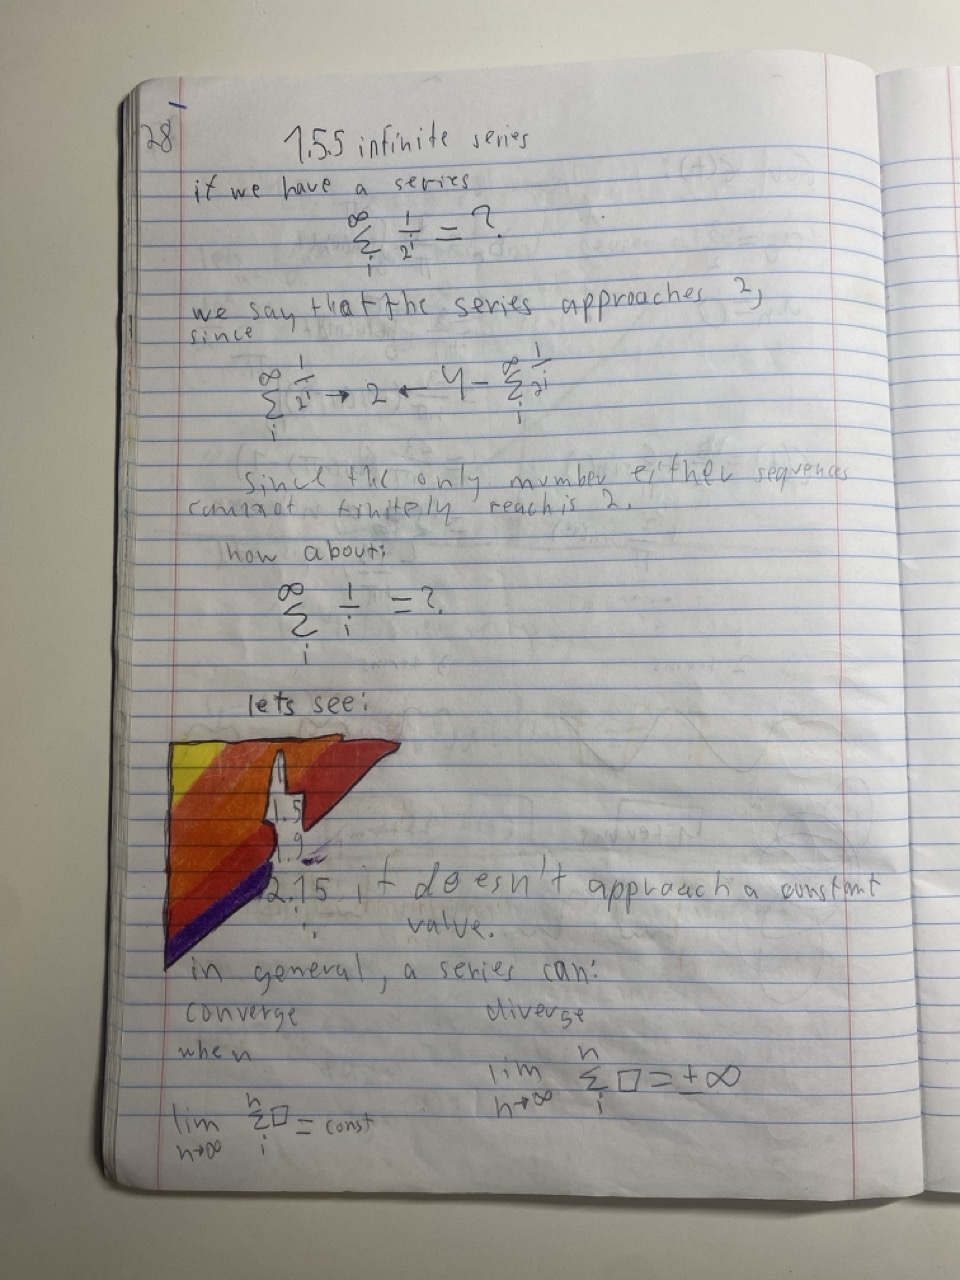 28
1.5.5 infinite series
if we have a series
∞
∑ 1/2^i = ?
i
we say that the series approaches 2,
since
∞ ∞
∑ 1/2^i → 2 ← 4 - ∑ 1/2^i
i i
since the only number either sequences
cannot finitely reach is 2.
how about:
∞
∑ 1/i = ?
i
lets see:
1
1.5
1.9
2.15 it doesn't approach a constant
⋮ value.
in general, a series can:
converge diverge
when
lim n→∞ ∑ i n □ = ± ∞
lim n→∞ ∑ i n □ = const